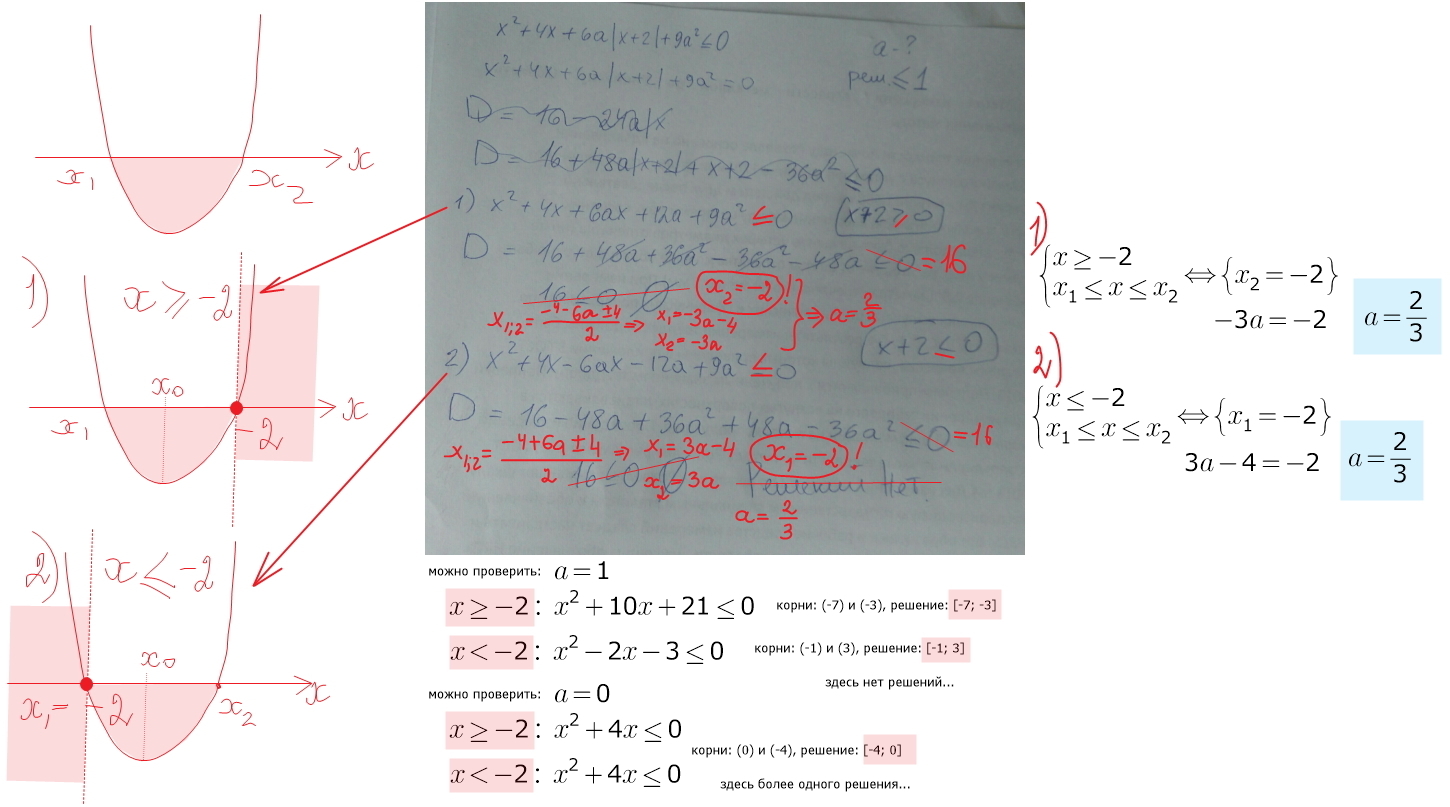 x₁
x₂
x
1)
x ≥ -2
x₀
x₁
-2
x
2)
x ≤ -2
x₀
x₁ = -2
x₂
x
x²+4x+6a|x+2|+9a²≤0
a-?
x²+4x+6a|x+2|+9a²=0
реш.≤1
D = 16 - 24a|x
D = 16+48a|x+2|+x+2-36a² ≤0
1) x²+4x+6ax+12a+9a² ≤0
x+2≥0
D = 16+48a+36a²-36a²-48a ≤0 =16
16≤0 ∅ x₂=-2 !
x₁;₂= (-4-6a±4)/2 ⇒ x₁=-3a-4
x₂=-3a
⇒ a=2/3
x+2≤0
2) x²+4x-6ax-12a+9a² ≤0
D = 16-48a+36a²+48a-36a² ≤0 =16
x₁;₂= (-4+6a±4)/2 ⇒ x₁=3a-4
x₁=-2 !
16≤0 x₂=3a
Решений нет.
a=2/3
1)
{x ≥ -2
x₁ ≤ x ≤ x₂ ⇔ {x₂ = -2}
-3a = -2
a = 2/3
2)
{x ≤ -2
x₁ ≤ x ≤ x₂ ⇔ {x₁ = -2}
3a-4 = -2
a = 2/3
можно проверить: a=1
x ≥ -2: x²+10x+21 ≤ 0 корни: (-7) и (-3), решение: [-7; -3]
x < -2: x²-2x-3 ≤ 0 корни: (-1) и (3), решение: [-1; 3]
здесь нет решений...
можно проверить: a=0
x ≥ -2: x²+4x ≤ 0
корни: (0) и (-4), решение: [-4; 0]
x < -2: x²+4x ≤ 0
здесь более одного решения...